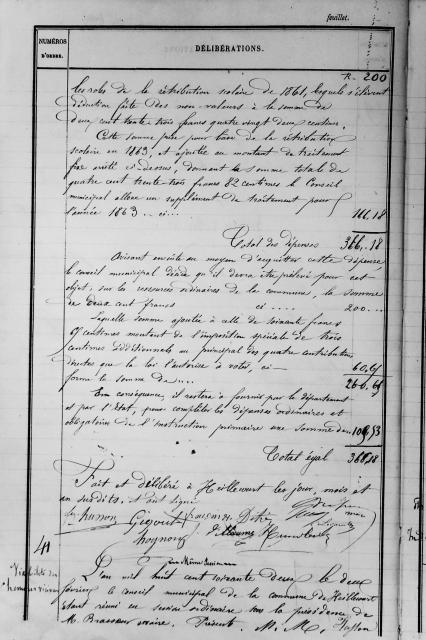 feuillet.
NUMÉROS
D'ORDRE.
DÉLIBÉRATIONS.
R. 200
les roles de la rétribution scolaire de 1861, lesquels s'élèvent
déduction faite des non valeurs à la somme de
deux cent trente trois francs quatre vingt deux centimes.
Cette somme prise pour base de la rétribution
scolaire en 1863, et ajoutée au montant du traitement
fixe arrêté ci-dessus, donnant la somme totale de
quatre cent trente trois francs 82 centimes le Conseil
municipal alloue un supplément de traitement pour
l'année 1863 .. ci... 166,18
Total des dépenses 366,18
Avisant ensuite au moyen d'acquitter cette dépense
le conseil municipal décide qu'il devra être prélevé pour cet
objet, sur les ressources ordinaires de la commune, la somme
de deux cent francs ci .... 200 ...
laquelle somme ajoutée à celle de soixante francs
65 centimes montant de l'imposition spéciale de trois
centimes additionnels au principal des quatre contributions
directes que la loi l'autorise à voter, ci— 60,65
forme la somme de .... 260,65
En conséquence, il restera à fournir par le département
et par l'État, pour compléter les dépenses ordinaires et
obligatoires de l'instruction primaire une somme de 105,53
Total égal 366,18
Fait et délibéré à Heillecourt les jour, mois et
an susdits, et ont signé
41
L'an mil huit cent soixante deux le deux
février le conseil municipal de la commune de Heillecourt
étant réuni en session ordinaire sous la présidence de
M. Brasseur maire. Présents. M. M.